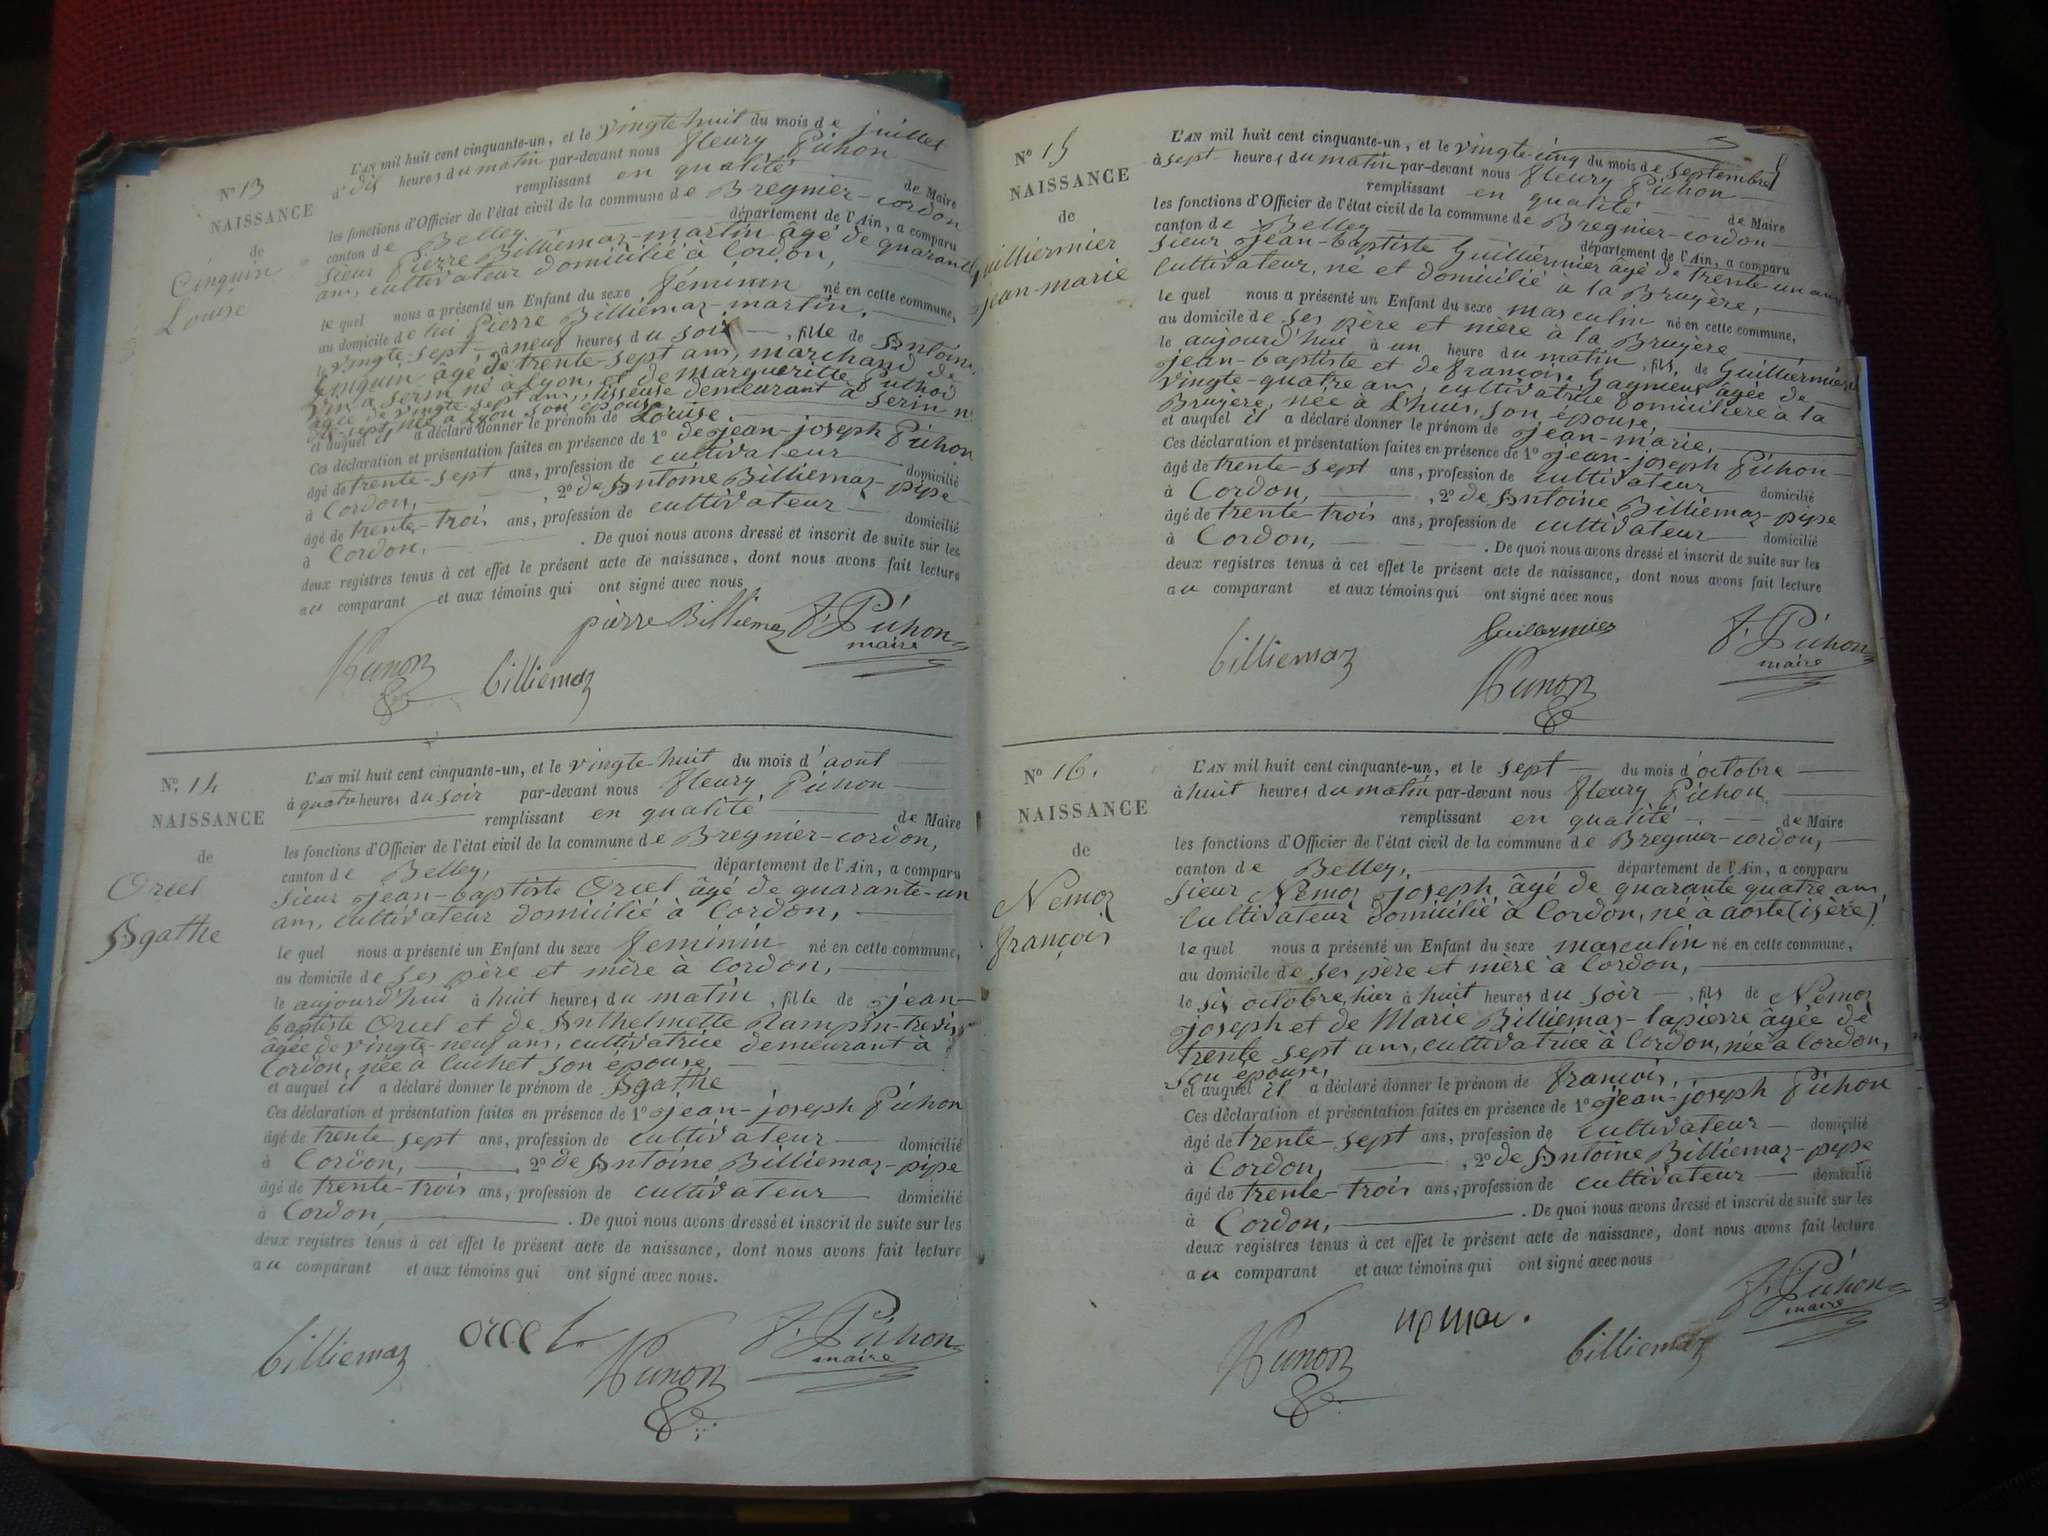 N° 13
NAISSANCE
de
Cinquin
Louise
L'AN mil huit cent cinquante-un, et le vingte huit du mois de juillet
à dix heures du matin par-devant nous fleury Pichon
remplissant en qualité de Maire
les fonctions d'Officier de l'état civil de la commune de Bregnier-cordon
canton de Belley département de l'Ain, a comparu
sieur Pierre Billiemaz-martin âgé de quarante
ans, cultivateur domicilié à Cordon,
le quel nous a présenté un Enfant du sexe féminin né en cette commune,
au domicile de lui Pierre Billiemaz-martin,
le vingte-sept à neuf heures du soir, fille de Antoine
Cinquin âgé de trente-sept ans, marchand de
vin à serin né à Lyon, et de margueritte
âgée de vingte-sept ans, tisseuse demeurant à serin n°
dix-sept, née à Lyon son épouse
et auquel il a déclaré donner le prénom de Louise
Ces déclaration et présentation faites en présence de 1° de jean-joseph Pichon
âgé de trente-sept ans, profession de cultivateur domicilié
à Cordon, , 2° de Antoine Billiemaz-pipe
âgé de trente-trois ans, profession de cultivateur domicilié
à Cordon, . De quoi nous avons dressé et inscrit de suite sur les
deux registres tenus à cet effet le présent acte de naissance, dont nous avons fait lecture
au comparant et aux témoins qui ont signé avec nous
pierre Billiemaz F. Pichon
maire
billiemaz
N°. 14
NAISSANCE
de
Orcel
Agathe
L'AN mil huit cent cinquante-un, et le vingte-huit du mois d'aout
à quatre heures du soir par-devant nous fleury Pichon
remplissant en qualité de Maire
les fonctions d'Officier de l'état civil de la commune de Bregnier-cordon,
canton de Belley, département de l'Ain, a comparu
sieur jean-baptiste Orcel âgé de quarante-un
ans, cultivateur domicilié à Cordon,
le quel nous a présenté un Enfant du sexe feminin né en cette commune,
au domicile de ses père et mère à Cordon,
le aujourd'hui à huit heures du matin, fille de jean-
baptiste Orcel et de Anthelmette Rampin-
âgée de vingte-neuf ans, cultivatrice demeurant à
Cordon, née à Luchet son épouse,
et auquel il a déclaré donner le prénom de Agathe
Ces déclaration et présentation faites en présence de 1° jean-joseph Pichon
âgé de trente sept ans, profession de cultivateur domicilié
à Cordon, , 2° de Antoine Billiemaz-pipe
âgé de trente-trois ans, profession de cultivateur domicilié
à Cordon, . De quoi nous avons dressé et inscrit de suite sur les
deux registres tenus à cet effet le présent acte de naissance, dont nous avons fait lecture
au comparant et aux témoins qui ont signé avec nous.
billiemaz orcel F. Pichon
maire
N° 15
NAISSANCE
de
Guilliermier
jean-marie
L'AN mil huit cent cinquante-un, et le vingte-cinq du mois de septembre
à sept heures du matin par-devant nous fleury Pichon
remplissant en qualité de Maire
les fonctions d'Officier de l'état civil de la commune de Bregnier-cordon
canton de Belley département de l'Ain, a comparu
sieur jean-baptiste Guilliermier âgé de trente un ans
cultivateur, né et domicilié à la Bruyère,
le quel nous a présenté un Enfant du sexe masculin né en cette commune,
au domicile de ses père et mère à la Bruyère
le aujourd'hui à un heure du matin, fils de Guilliermier
jean-baptiste et de françoise Gagnieux âgée de
vingte-quatre ans, cultivatrice domicilière à la
Bruyère, née à Lhuis, son épouse,
et auquel il a déclaré donner le prénom de jean-marie,
Ces déclaration et présentation faites en présence de 1° jean-joseph Pichon
âgé de trente sept ans, profession de cultivateur domicilié
à Cordon, , 2° de Antoine Billiemaz-pipe
âgé de trente trois ans, profession de cultivateur domicilié
à Cordon, . De quoi nous avons dressé et inscrit de suite sur les
deux registres tenus à cet effet le présent acte de naissance, dont nous avons fait lecture
au comparant et aux témoins qui ont signé avec nous
billiemaz Guillermier F. Pichon
maire
N° 16.
NAISSANCE
de
Nemoz
françois
L'AN mil huit cent cinquante-un, et le sept du mois d'octobre
à huit heures du matin par-devant nous fleury Pichon
remplissant en qualité de Maire
les fonctions d'Officier de l'état civil de la commune de Bregnier-cordon,
canton de Belley, département de l'Ain, a comparu
sieur Nemoz joseph âgé de quarante quatre ans
cultivateur domicilié à Cordon, né à aoste (isère)
le quel nous a présenté un Enfant du sexe masculin né en cette commune,
au domicile de ses père et mère à Cordon,
le six octobre, hier à huit heures du soir, fils de Nemoz
joseph et de Marie Billiemaz-lapierre âgée de
trente sept ans, cultivatrice à Cordon, née à Cordon,
son épouse,
et auquel il a déclaré donner le prénom de françois,
Ces déclaration et présentation faites en présence de 1° jean-joseph Pichon
âgé de trente-sept ans, profession de cultivateur domicilié
à Cordon, , 2° de Antoine Billiemaz-pipe
âgé de trente-trois ans, profession de cultivateur domicilié
à Cordon, . De quoi nous avons dressé et inscrit de suite sur les
deux registres tenus à cet effet le présent acte de naissance, dont nous avons fait lecture
au comparant et aux témoins qui ont signé avec nous
F. Pichon
maire
billiemaz